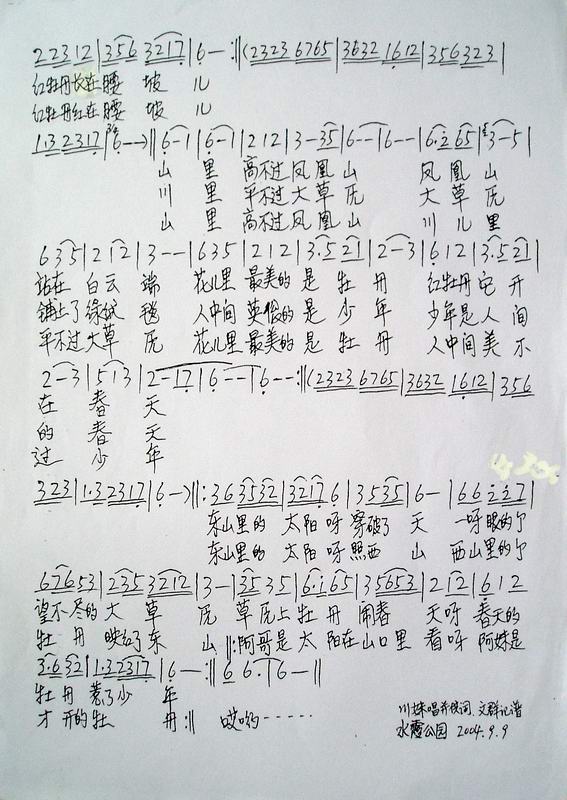 2 2 3 1 2 | 3 5 6 3 2 1 7 | 6 — :‖ (2323 6765 | 3632 1612 | 356 323 |
红牡丹长在腰 坡 儿
红牡丹红在腰 坡 儿
1·3 2317 | 6 — —) ‖ 6 — 1 | 6 — 1 | 2 1 2 | 3 — 35 | 6 — — | 6 — — | 6·2 65 | 3 — 5 |
山 里 高不过凤凰山 凤凰山
川 里 平不过大草原 大草原
山 里 高不过凤凰山 川儿里
6 35 | 2 12 | 3 — — | 6 3 5 | 2 1 2 | 3·5 21 | 2 — 3 | 6 1 2 | 3·5 21 |
站在 白云 端 花儿里 最美的 是 牡丹 红牡丹 它 开
铺上了绿绒 毯 人中间 英俊的 是 少年 少年是人 间
平不过大草 原 花儿里 最美的 是 牡丹 人中间美 不
2 — 3 | 5 1 3 | 2 — 17 | 6 — — | 6 — — :‖ (2323 6765 | 3632 1612 | 356
在 春 天
的 春 天
过 少 年
323 | 1·3 2317 | 6 —) ‖: 36 3532 | 3217 6 | 35 35 | 6 — | 6 6 2 2 7 |
东山里的 太阳呀 穿破了 天 一呀眼的个
东山里的 太阳呀 照西 山 西山里的个
67653 | 235 3212 | 3 — | 35 35 | 6·1 65 | 3 5653 | 2 12 | 6 1 2
望不尽的 大 草 原 草原上 牡丹 闹春 天呀 春天的
牡 丹 映红了东 山 ‖: 阿哥是 太 阳在山口里 看呀 阿妹是
3·6 32 | 1·3 2317 | 6 — :‖ 6 6· | 6 — ‖
牡丹 惹了少 年
才 开的牡 丹 :‖ 哎哟 ······
文群记谱
公园 2004.9.9